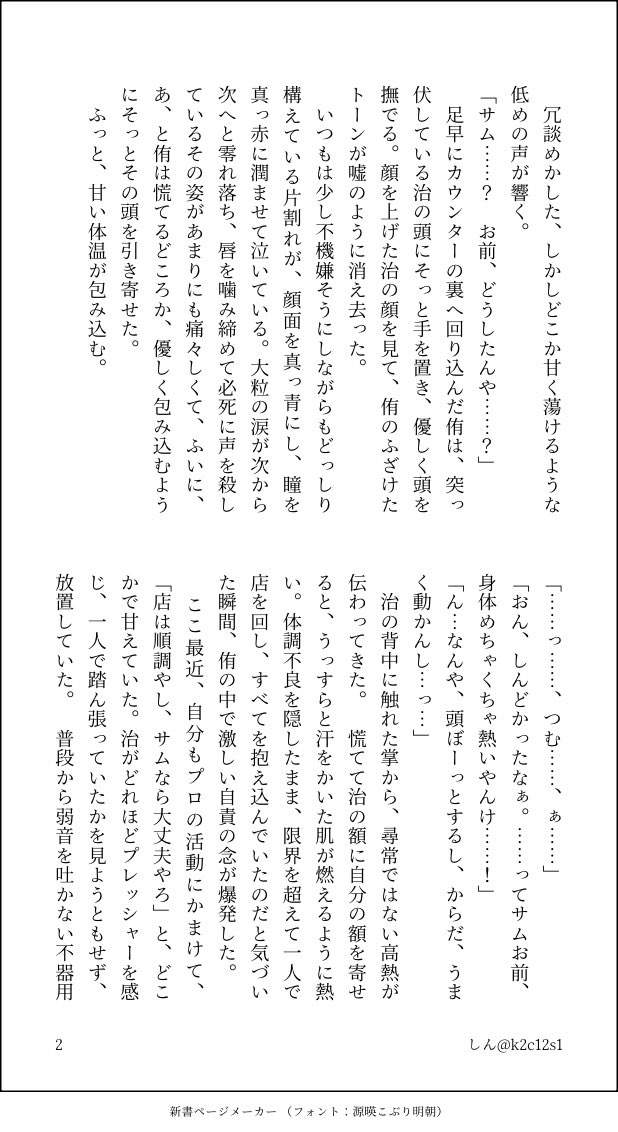 冗談めかした、しかしどこか甘く蕩けるような
低めの声が響く。
「サム……？　お前、どうしたんや……？」
　足早にカウンターの裏へ回り込んだ侑は、突っ
伏している治の頭にそっと手を置き、優しく頭を
撫でる。顔を上げた治の顔を見て、侑のふざけた
トーンが嘘のように消え去った。
　いつもは少し不機嫌そうにしながらもどっしり
構えている片割れが、顔面を真っ青にし、瞳を
真っ赤に潤ませて泣いている。大粒の涙が次から
次へと零れ落ち、唇を噛み締めて必死に声を殺し
ているその姿があまりにも痛々しくて、ふいに、
あ、と侑は慌てるどころか、優しく包み込むよう
にそっとその頭を引き寄せた。
　ふっと、甘い体温が包み込む。
「……っ……、つむ……、ぁ……」
「おん、しんどかったなぁ。……ってサムお前、
身体めちゃくちゃ熱いやんけ……！」
「ん…なんや、頭ぼーっとするし、からだ、うま
く動かんし…っ…」
　治の背中に触れた掌から、尋常ではない高熱が
伝わってきた。　慌てて治の額に自分の額を寄せ
ると、うっすらと汗をかいた肌が燃えるように熱
い。体調不良を隠したまま、限界を超えて一人で
店を回し、すべてを抱え込んでいたのだと気づい
た瞬間、侑の中で激しい自責の念が爆発した。
　ここ最近、自分もプロの活動にかまけて、
「店は順調やし、サムなら大丈夫やろ」と、どこ
かで甘えていた。治がどれほどプレッシャーを感
じ、一人で踏ん張っていたかを見ようともせず、
放置していた。　普段から弱音を吐かない不器用
2
しん@k2c12s1
新書ページメーカー（フォント：源暎こぶり明朝）